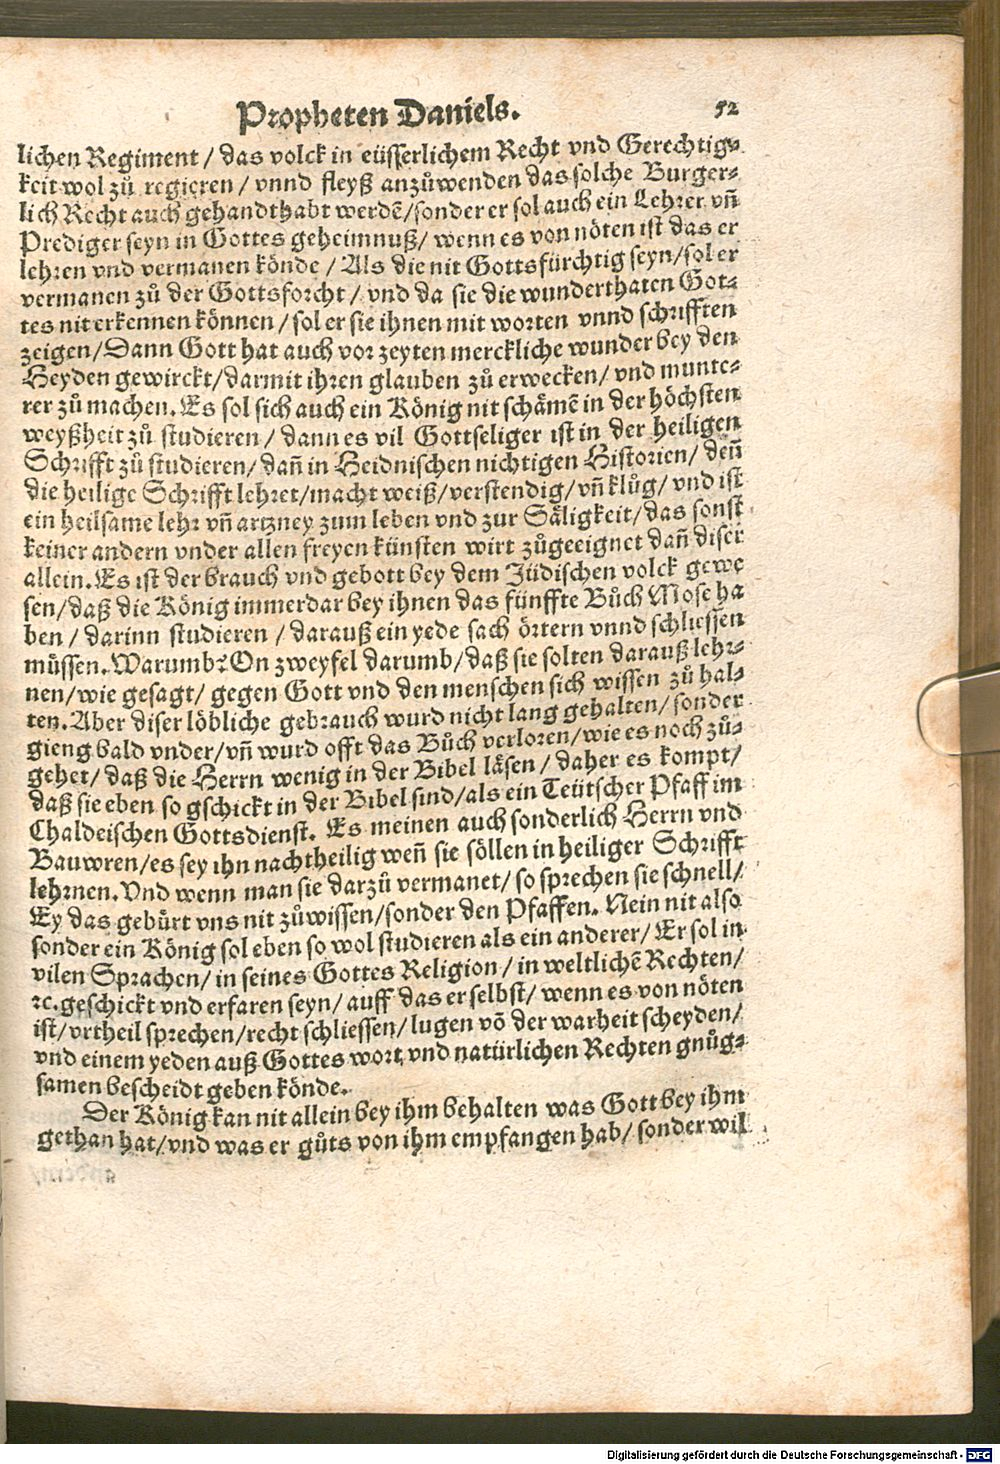 Propheten Daniels. 52
lichen Regiment / das volck in eüsserlichem Recht vnd Gerechtig⸗
keit wol zů regieren / vnnd fleyß anzůwenden das solche Burger⸗
lich Recht auch gehandthabt werdē/sonder er sol auch ein Lehrer vn̄
Prediger seyn in Gottes geheimnuß/ wenn es von nöten ist das er
lehren vnd vermanen könde / Als die nit Gottsfürchtig seyn/sol er
vermanen zů der Gottsforcht / vnd da sie die wunderthaten Got⸗
tes nit erkennen können / sol er sie ihnen mit worten vnnd schrifften
zeigen/Dann Gott hat auch vor zeyten merckliche wunder bey den
Heyden gewirckt/darmit ihren glauben zů erwecken/ vnd munte⸗
rer zů machen. Es sol sich auch ein König nit schämē in der höchsten
weyßheit zů studieren / dann es vil Gottseliger ist in der heiligen
Schrifft zů studieren/ dan̄ in Heidnischen nichtigen Historien/ den̄
die heilige Schrifft lehret/macht weiß/verstendig/vn̄ klůg/ vnd ist
ein heilsame lehr vn̄ artzney zum leben vnd zur Säligkeit/das sonst
keiner andern vnder allen freyen künsten wirt zůgeeignet dan̄ diser
allein. Es ist der brauch vnd gebott bey dem Jüdischen volck gewe
sen/daß die König immerdar bey ihnen das fünffte Bůch Mose ha
ben / darinn studieren / darauß ein yede sach örtern vnnd schliessen
müssen. Warumb? On zweyfel darumb/daß sie solten darauß lehr⸗
nen/wie gesagt/ gegen Gott vnd den menschen sich wissen zů hal⸗
ten. Aber diser löbliche gebrauch wurd nicht lang gehalten/ sonder
gieng bald vnder/vn̄ wurd offt das Bůch verloren/wie es noch zů⸗
gehet/ daß die Herrn wenig in der Bibel läsen / daher es kompt/
daß sie eben so gschickt in der Bibel sind/als ein Teütscher Pfaff im
Chaldeischen Gottsdienst. Es meinen auch sonderlich Herrn vnd
Bauwren/es sey ihn nachtheilig wen̄ sie söllen in heiliger Schrifft
lehrnen. Vnd wenn man sie darzů vermanet/ so sprechen sie schnell/
Ey das gebürt vns nit zůwissen/sonder den Pfaffen. Nein nit also
sonder ein König sol eben so wol studieren als ein anderer/ Er sol in
vilen Sprachen/ in seines Gottes Religion / in weltlichē Rechten/
ꝛc. geschickt vnd erfaren seyn/ auff das er selbst/ wenn es von nöten
ist/vrtheil sprechen/recht schliessen/ lugen vō der warheit scheyden/
vnd einem yeden auß Gottes wort vnd natürlichen Rechten gnůg⸗
samen bescheidt geben könde.
Der König kan nit allein bey ihm behalten was Gott bey ihm
gethan hat/vnd was er gůts von ihm empfangen hab/ sonder wil
Digitalisierung gefördert durch die Deutsche Forschungsgemeinschaft - DFG